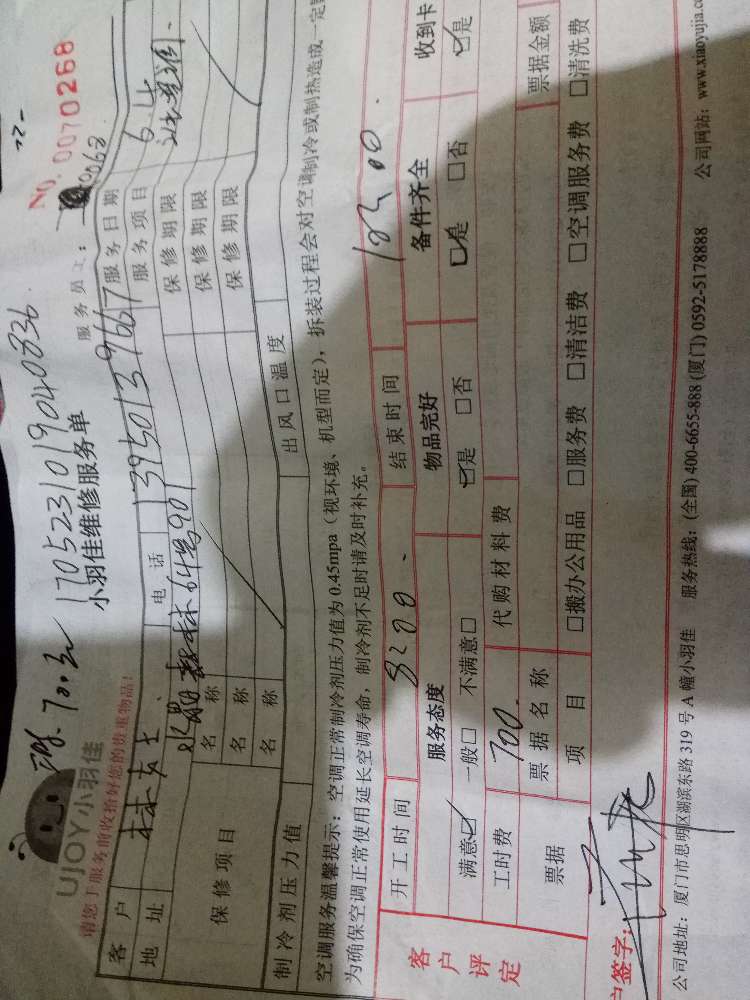 NO. 0070268
170523101904083
小羽佳维修服务单
UJOY小羽佳
请您于服务前收拾好您的贵重物品!
服务员工:
客户 林女士 电话 13950139667 服务日期 6.4
地址 服务项目
保修项目 名称 保修期限
名称 保修期限
名称 保修期限
制冷剂压力值 出风口温度
空调服务温馨提示:空调正常制冷剂压力值为0.45mpa(视环境、机型而定),拆装过程会对空调制冷或制热造成一定
为确保空调正常使用延长空调寿命,制冷剂不足时请及时补充。
客户评定
开工时间 结束时间
服务态度 物品完好 备件齐全 收到卡
满意☑ 一般□ 不满意□ ☑是 □否 ☑是 □否 ☑是
工时费 700. 代购材料费
票据 票据名称 票据金额
项目 □搬办公用品 □服务费 □清洁费 □空调服务费 □清洗费
户签字:
公司地址:厦门市思明区湖滨东路319号A幢小羽佳 服务热线:(全国) 400-6655-888 (厦门) 0592-5178888 公司网站:www.xiaoyujia.c